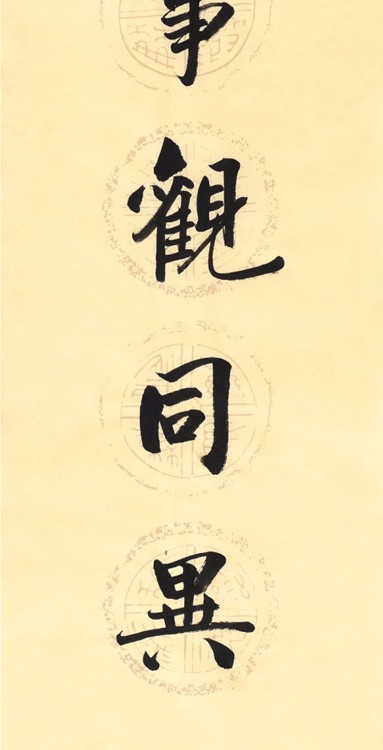 事觀同異